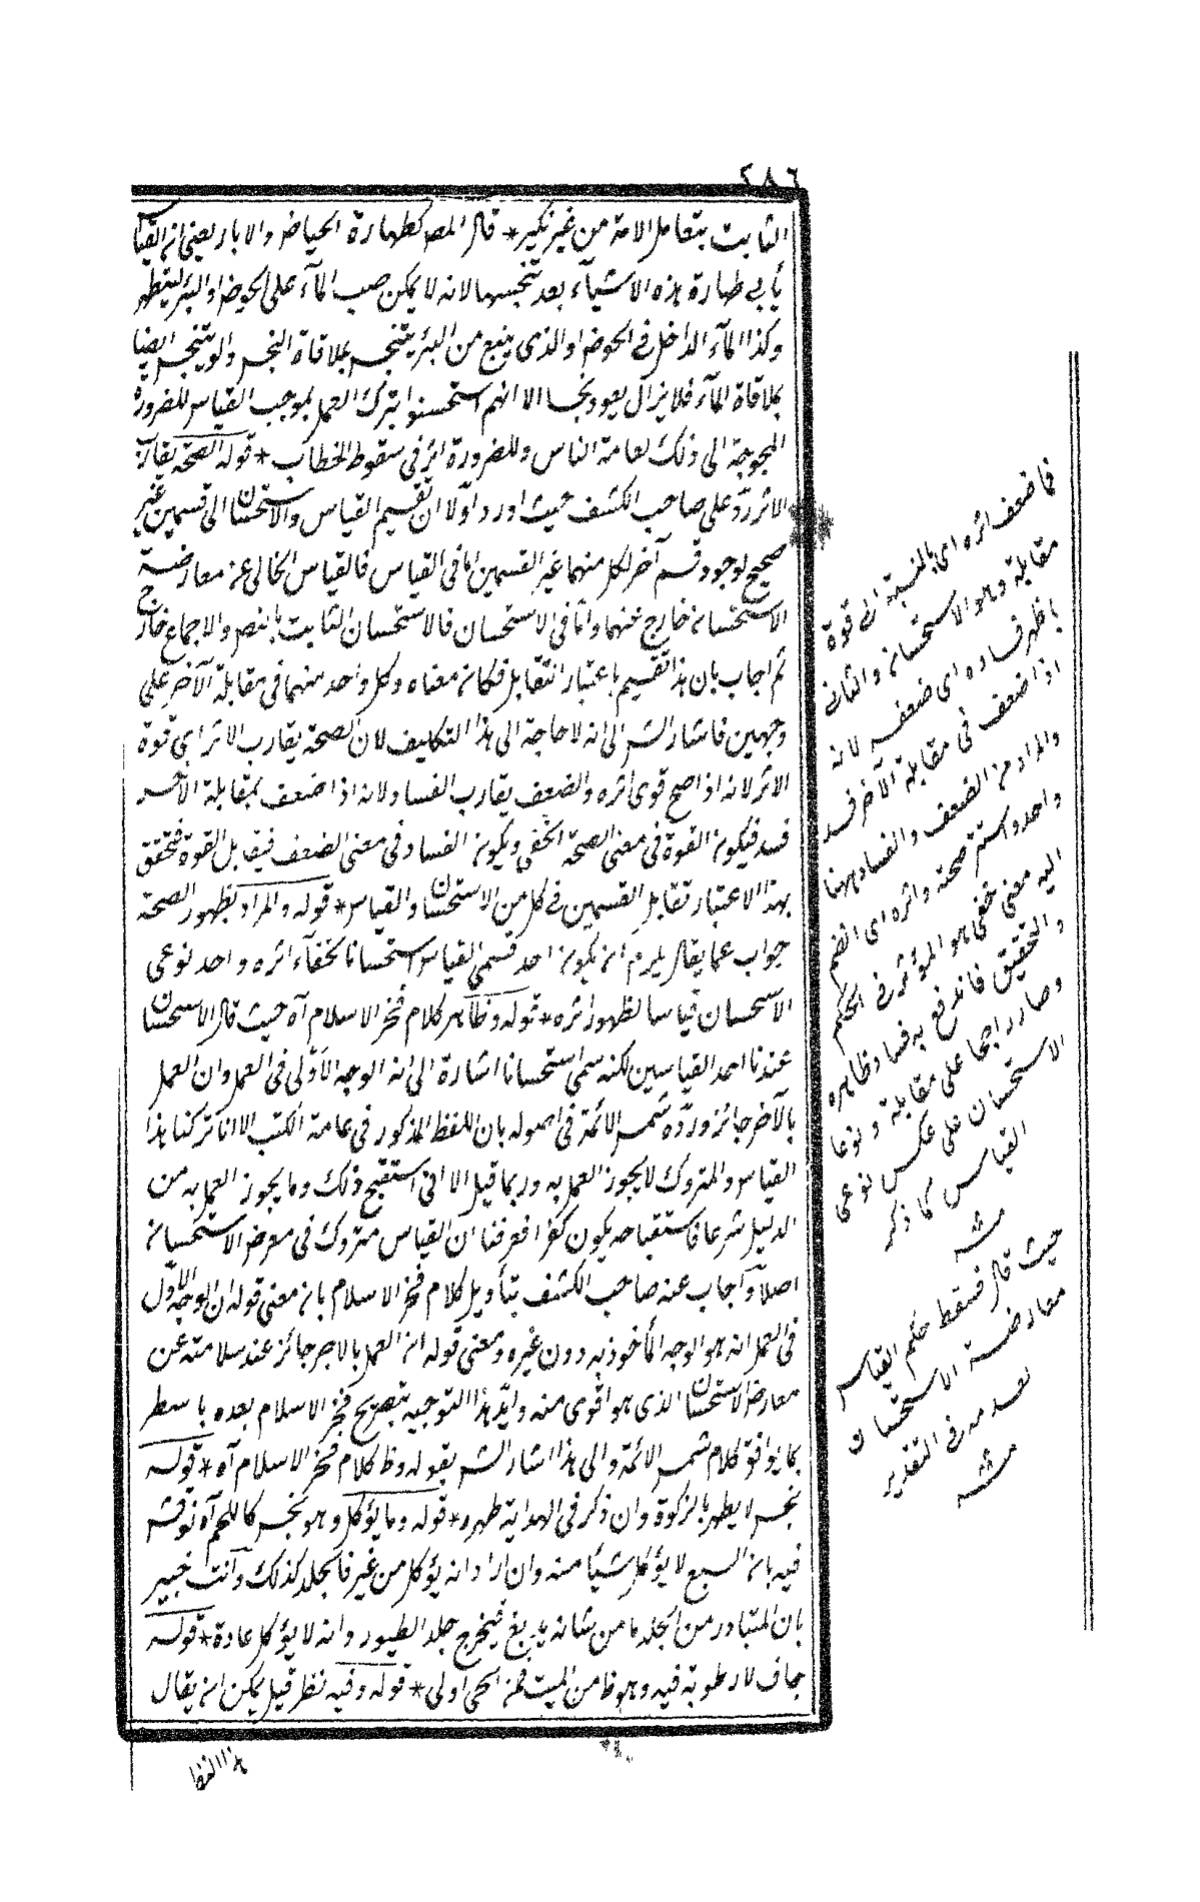 ٢٨٦
الثابت بتعامل الامة من غير نكير * قال المص كطهارة الحياض والابار يعنى ان القياس
يأبى طهارة هذه الاشيآء بعد تنجسها لانه لا يمكن صب المآء على الحوض او البئر ليتطهر
وكذا المآء الداخل فى الحوض او الذى ينبع من البئر يتنجس بملاقاة النجس والدلو يتنجس ايضا
بملاقاة المآء فلا يزال يعود نجسا الا انهم استحسنوا ترك العمل بموجب القياس للضرورة
المحوجة الى ذلك لعامة الناس وللضرورة اثر فى سقوط الخطاب * قوله الصحة يقارب
الاثر ردّ على صاحب الكشف حيث اورد اوّلا ان تقسيم القياس والاستحسان الى قسمين غير
صحيح لوجود قسم آخر لكل منهما غير القسمين اما فى القياس فالقياس الخالى عن معارضة
الاستحسان خارج عنهما واما فى الاستحسان فالاستحسان الثابت بالنص والاجماع خارج
ثم اجاب بان هذا تقسيم باعتبار التقابل فكان معناه وكل واحد منهما فى مقابلة الآخر على
وجهين فاشار الش الى انه لا حاجة الى هذا التكليف لان الصحة يقارب الاثر اى قوة
الاثر لانه اذا صح قوى اثره والضعف يقارب الفساد لانه اذا ضعف بمقابلة الآخر
فسد فيكون القوة فى معنى الصحة الخفى ويكون الفساد فى معنى الضعف فيقابل القوة فتحقق
بهذا الاعتبار تقابل القسمين فى كل من الاستحسان والقياس * قوله والمراد بظهور الصحة
جواب عما يقال يلزم ان يكون احد قسمى القياس استحسانا لخفآء اثره واحد نوعى
الاستحسان قياسا لظهور اثره * قوله وظاهر كلام فخر الاسلام آه حيث قال الاستحسان
عندنا احد القياسين لكنه سمى استحسانا اشارة الى انه الوجه الاولى فى العمل وان العمل
بالآخر جائز وردّه شمس الائمة فى اصوله بان اللفظ المذكور فى عامة الكتب الا انا تركنا هذا
القياس والمتروك لا يجوز العمل به وربما قيل الا انى استقبح ذلك وما يجوز العمل به من
الدليل شرعا فاستقباحه يكون كفرا فعرفنا ان القياس متروك فى معرض الاستحسان
اصلا وآجاب عنه صاحب الكشف بتأويل كلام فخر الاسلام بان معنى قوله ان الوجه الاوّل
فى العمل انه هو الوجه المأخوذ به دون غيره ومعنى قوله ان العمل بالاخر جائز عند سلامته عن
معارض الاستحسان الذى هو اقوى منه وايّد هذا التوجيه بتصريح فخر الاسلام بعده باسطر
بما يوافق كلام شمس الائمة والى هذا اشار الش بقوله وظ كلام فخر الاسلام آه * قوله
نجس لا يطهر بالزكوة وان ذكر فى الهداية طهره * قوله وما يؤكل وهو نجس كاللحم آه نوقش
فيه بان السبع لا يؤكل شيأ منه وان اراد انه يؤكل من غيره فالجلد كذلك وآنت خبير
بان المتبادر من الجلد ما من شانه يدبغ فيخرج جلد الطيور وانه لا يؤكل عادة * قوله
جاف لا رطوبة فيه وهو ظ من الميت فمن الحى اولى * قوله وفيه نظر قيل يمكن ان يقال
فما ضعف اثره اى بالنسبة الى قوة
مقابله وهو الاستحسان والثانى
ما ظهر فساده اى ضعفه لانه
اذا ضعف فى مقابلة الآخر فسد
والمراد من الضعف والفساد ههنا
واحد واستتر صحته واثره اى انضم
اليه معنى خفى هو المؤثر فى الحكم
و التحقيق فاندفع به فساد ظاهره
وصار راجحا على مقابله ونوعا
الاستحسان على عكس نوعى
القياس كما ذكر
منه
حيث قال فسقط حكم القياس
معارضة الاستحسان
لعدمه فى التقدير
منه